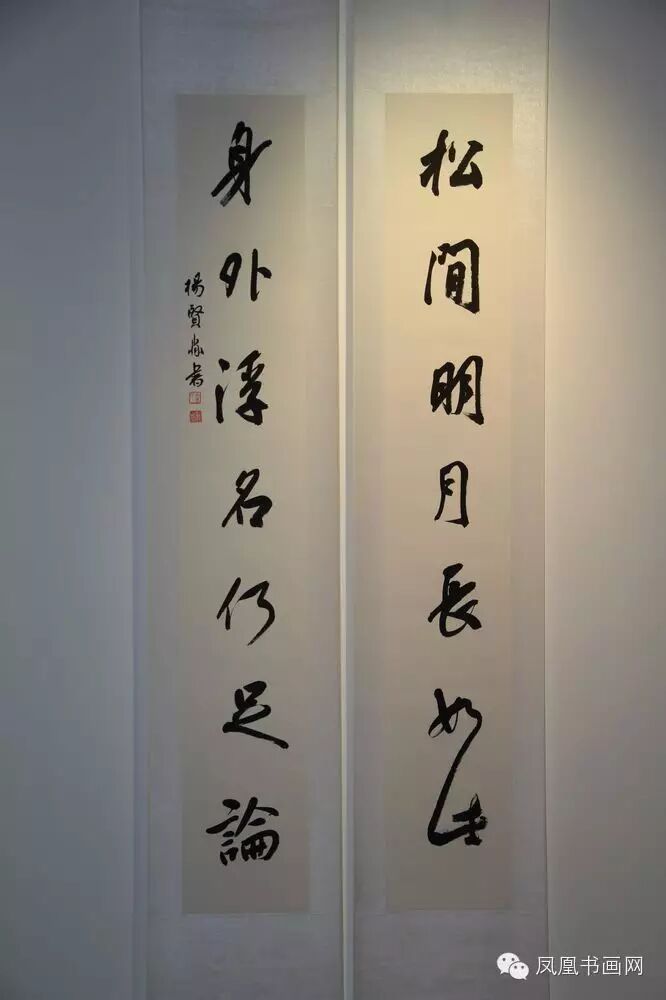 松間明月長如此
身外浮名何足論
楊賢淼書
凤凰书画网